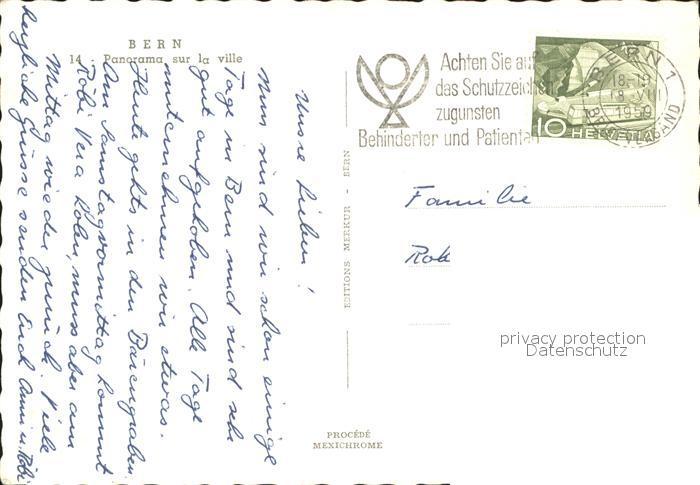 BERN
14 Panorama sur la ville
Unsre Lieben!
Nun sind wir schon einige
Tage in Bern und sind sehr
gut aufgehoben. Alle Tage
unternehmen wir etwas.
Heute gehts in den Bärengraben
Am Samstagvormittag kommt
Röbi Vera holen, muss aber am
Mittag wieder zurück. Viele
herzliche Grüsse senden Euch Anni u. Röbi
EDITIONS MERKUR - BERN
PROCÉDÉ
MEXICHROME
Achten Sie au
das Schutzzeichen
zugunsten
Behinderter und Patienten
BERN 1
18-19
1959
BRIEFVERSAND
10 HELVETIA
Familie
Rob
privacy protection
Datenschutz